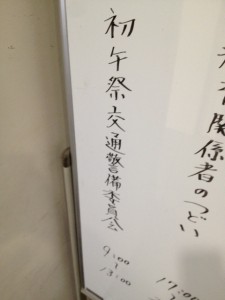 関係者のつどい
17:00
初午祭交通警備委員会
9:00
〜
13:00